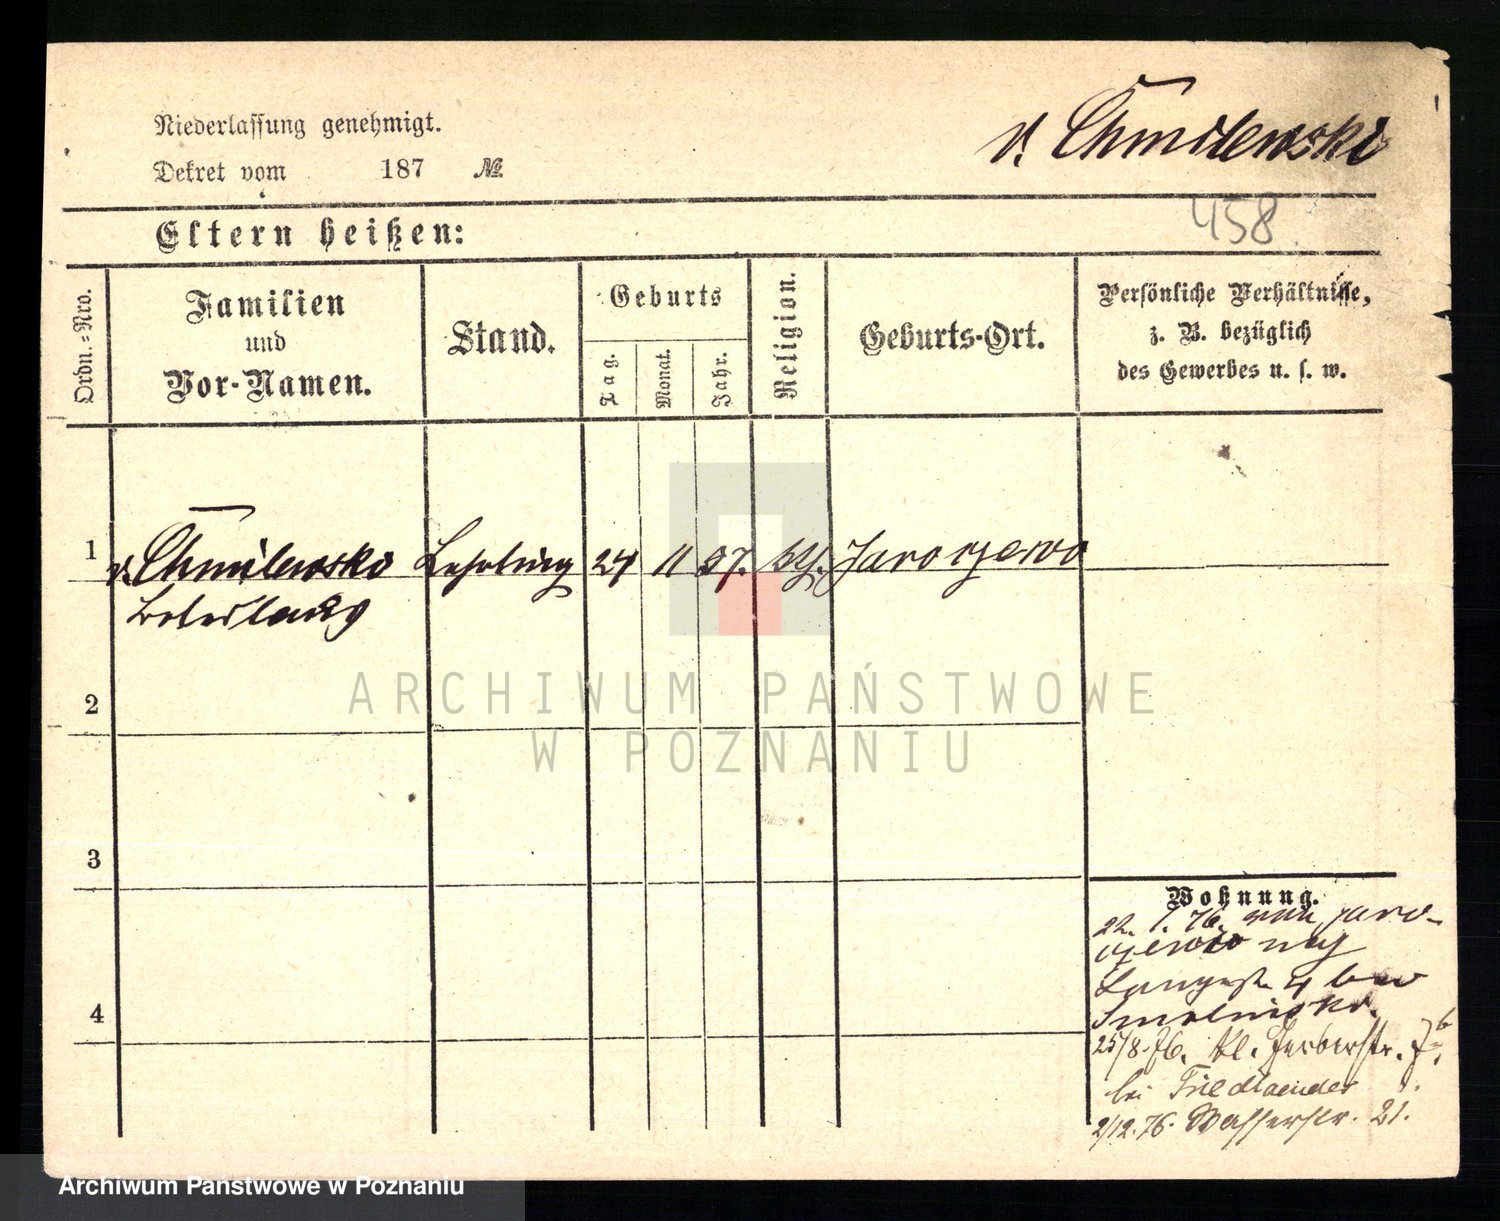 Niederlassung genehmigt.
Dekret vom 187 №
v. Chmilewski
Eltern heißen:
458
Ordn.=Nro.
Familien
und
Vor-Namen.
Stand.
Geburts
Tag.
Monat.
Jahr.
Religion.
Geburts-Ort.
Persönliche Verhältnisse,
z. B. bezüglich
des Gewerbes u. s. w.
1
v. Chmilewski Lehrling 24 11 57. kth. Jaroczewo
Boleslaus
ARCHIWUM PAŃSTWOWE
2
W POZNANIU
3
Wohnung.
22. 1. 76. von Jaro-
czewo nach
Langestr. 4 bei
Smolinski.
4
25/8. 76. Kl. Gerberstr. 7b.
bei Friedlaender
2/12. 76. Wasserstr. 21.
Archiwum Państwowe w Poznaniu